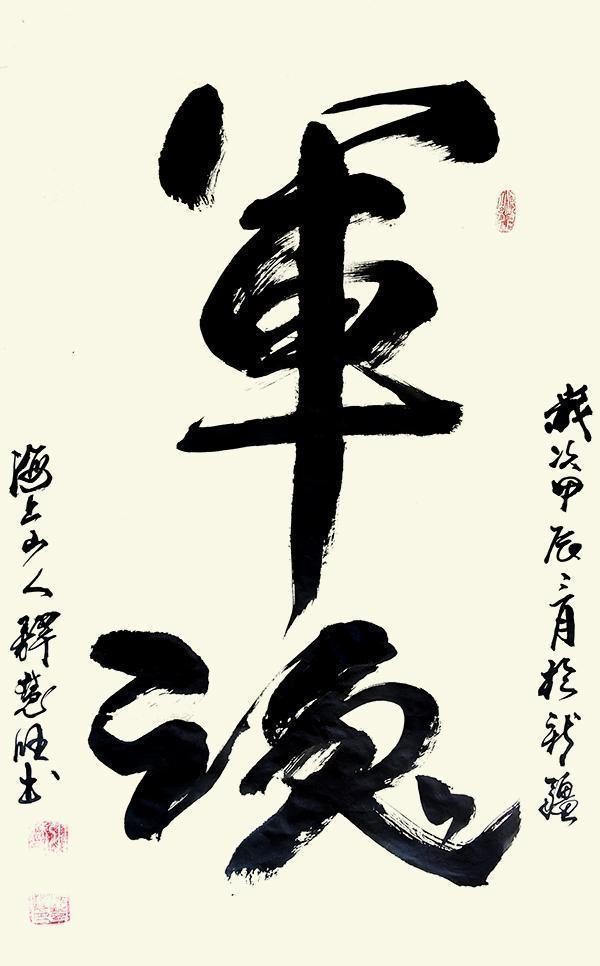 軍魂
歲次甲辰三月於新疆
海上山人釋慧旺書